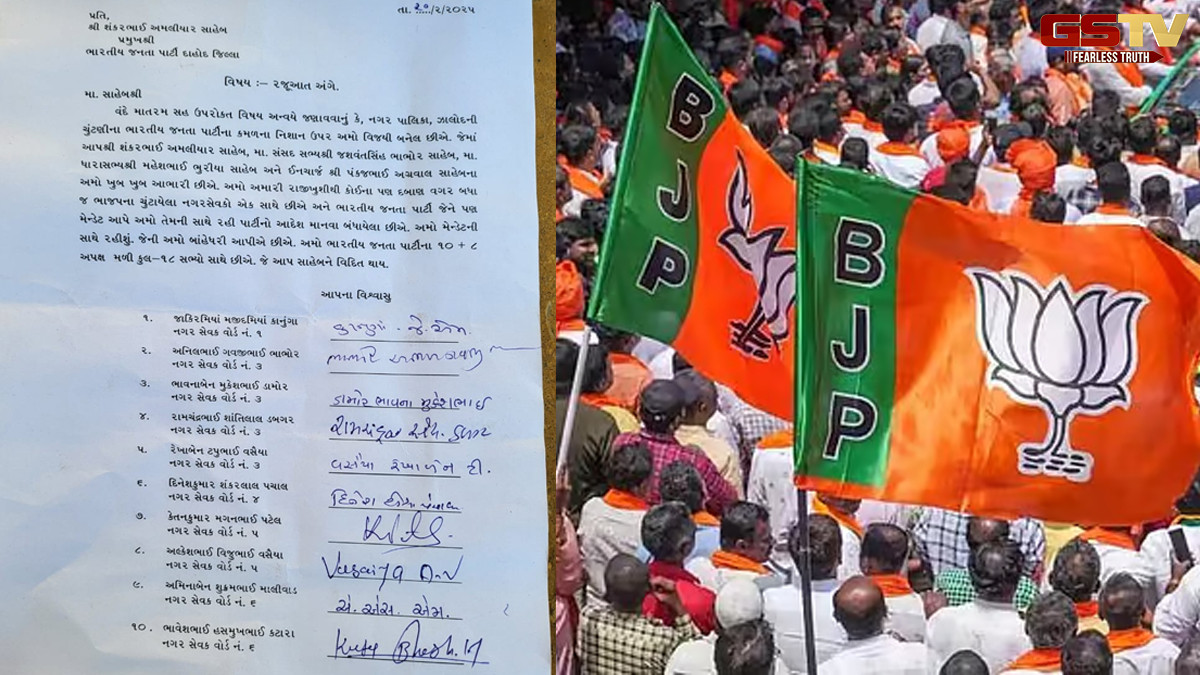 તા. ૨૦/૨/૨૦૨૫
પ્રતિ,
શ્રી શંકરભાઈ અમલીયાર સાહેબ
પ્રમુખશ્રી
ભારતીય જનતા પાર્ટી દાહોદ જિલ્લા
વિષય :– રજૂઆત અંગે.
મા. સાહેબશ્રી
વંદે માતરમ સહ ઉપરોકત વિષય અન્વયે જણાવવાનું કે, નગર પાલિકા, ઝાલોદની
ચુંટણીના ભારતીય જનતા પાર્ટીના કમળના નિશાન ઉપર અમો વિજયી બનેલ છીએ. જેમાં
આપશ્રી શંકરભાઈ અમલીયાર સાહેબ, મા. સંસદ સભ્યશ્રી જશવંતસિંહ ભાભોર સાહેબ, મા.
ધારાસભ્યશ્રી મહેશભાઈ ભુરીયા સાહેબ અને ઈનચાર્જ શ્રી પંકજભાઈ અગ્રવાલ સાહેબના
અમો ખુબ ખુબ આભારી છીએ. અમો અમારી રાજીખુશીથી કોઈના પણ દબાણ વગર બધા
જ ભાજપના ચુંટાયેલા નગરસેવકો એક સાથે છીએ અને ભારતીય જનતા પાર્ટી જેને પણ
મેન્ડેટ આપે અમો તેમની સાથે રહી પાર્ટીનો આદેશ માનવા બંધાયેલા છીએ. અમો મેન્ડેટની
સાથે રહીશું. જેની અમો બાંહેધરી આપીએ છીએ. અમો ભારતીય જનતા પાર્ટીના ૧૦ + ૮
અપક્ષ મળી કુલ–૧૮ સભ્યો સાથે છીએ. જે આપ સાહેબને વિદિત થાય.
આપના વિશ્વાસુ
૧. જાકિરમિયાં મજીદમિયાં કાનુંગા
નગર સેવક વોર્ડ નં. ૧
કાનુગા. જે. એમ.
૨. અનિલભાઈ ગવજીભાઈ ભાભોર
નગર સેવક વોર્ડ નં. ૩
૩. ભાવનાબેન મુકેશભાઈ ડામોર
નગર સેવક વોર્ડ નં. ૩
ડામોર ભાવના મુકેશભાઈ
૪. રામચંદ્રભાઈ શાંતિલાલ ડબગર
નગર સેવક વોર્ડ નં. ૩
૫. રેખાબેન ટપુભાઈ વસૈયા
નગર સેવક વોર્ડ નં. ૩
વસૈયા રેખાબેન ટી.
૬. દિનેશકુમાર શંકરલાલ પચાલ
નગર સેવક વોર્ડ નં. ૪
૭. કેતનકુમાર મગનભાઈ પટેલ
નગર સેવક વોર્ડ નં. ૫
૮. અલ્કેશભાઈ વિજુભાઈ વસૈયા
નગર સેવક વોર્ડ નં. ૫
૯. અમિનાબેન શુક્રમભાઈ માલીવાડ
નગર સેવક વોર્ડ નં. ૬
એ. એસ. એમ.
૧૦. ભાવેશભાઈ હસમુખભાઈ કટારા
નગર સેવક વોર્ડ નં. ૬
BJP
BJP
GSTV
FEARLESS TRUTH